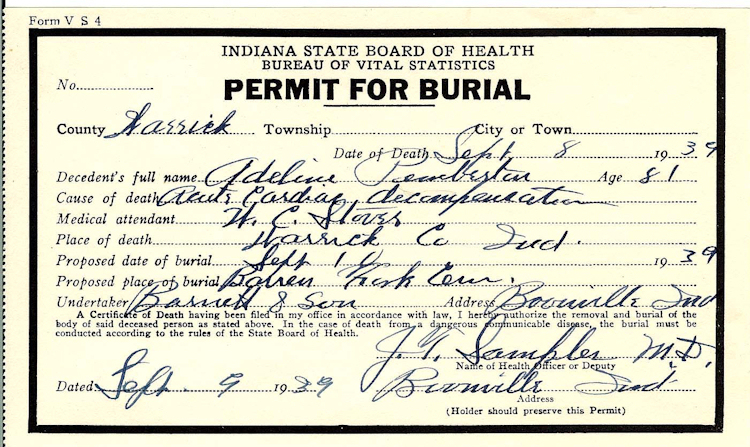 Form V S 4
INDIANA STATE BOARD OF HEALTH
BUREAU OF VITAL STATISTICS
No.
PERMIT FOR BURIAL
County Warrick Township City or Town
Date of Death Sept 8 1939
Decedent's full name Adeline Pemberton Age 81
Cause of death Acute Cardiac decompensation
Medical attendant W. C. Stover
Place of death Warrick Co Ind.
Proposed date of burial Sept 10 1939
Proposed place of burial Barren Fork Cem.
Undertaker Barnett & Son Address Boonville Ind
A Certificate of Death having been filed in my office in accordance with law, I hereby authorize the removal and burial of the
body of said deceased person as stated above. In the case of death from a dangerous communicable disease, the burial must be
conducted according to the rules of the State Board of Health.
J. T. Sampler M.D.
Name of Health Officer or Deputy
Dated Sept. 9 1939 Boonville Ind
Address
(Holder should preserve this Permit)